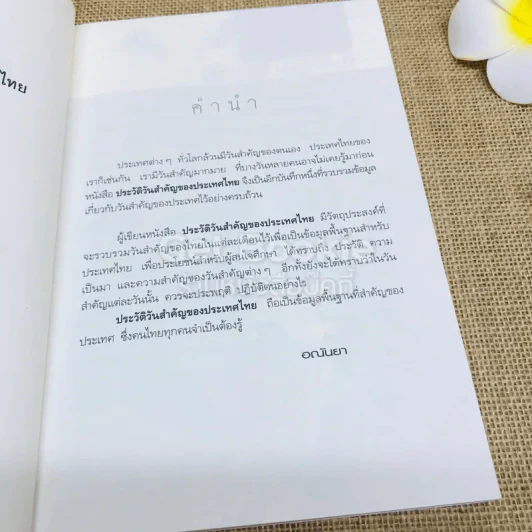 ไทย
คำนำ
ประเทศต่าง ๆ ทั่วโลกล้วนมีวันสำคัญของตนเอง ประเทศไทยของ
เราก็เช่นกัน เรามีวันสำคัญมากมาย ที่บางวันหลายคนอาจไม่เคยรู้มาก่อน
หนังสือ ประวัติวันสำคัญของประเทศไทย จึงเป็นอีกบันทึกหนึ่งที่รวบรวมข้อมูล
เกี่ยวกับวันสำคัญของประเทศไว้อย่างครบถ้วน
ผู้เขียนหนังสือ ประวัติวันสำคัญของประเทศไทย มีวัตถุประสงค์ที่
จะรวบรวมวันสำคัญของไทยในแต่ละเดือนไว้เพื่อเป็นข้อมูลพื้นฐานสำหรับ
ประเทศไทย เพื่อประโยชน์สำหรับผู้สนใจศึกษา ได้ทราบถึง ประวัติ ความ
เป็นมา และความสำคัญของวันสำคัญต่าง ๆ อีกทั้งยังจะได้ทราบว่าในวัน
สำคัญแต่ละวันนั้น ควรจะประพฤติ ปฏิบัติตนอย่างไร
ประวัติวันสำคัญของประเทศไทย ถือเป็นข้อมูลพื้นฐานที่สำคัญของ
ประเทศ ซึ่งคนไทยทุกคนจำเป็นต้องรู้
อณันยา